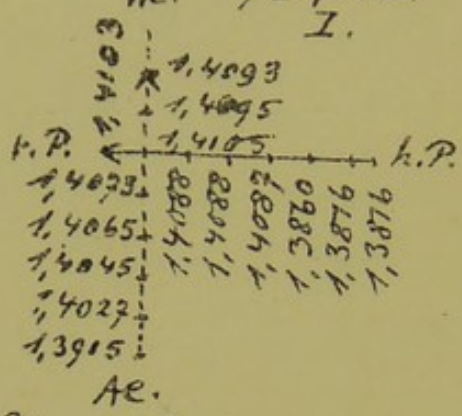 I.
1,4103
1,4093
1,4095
1,4105
r. P.
h. P.
1,4073
1,4065
1,4045
1,4027
1,3915
1,4088
1,4088
1,4087
1,3860
1,3816
1,3816
Ae.